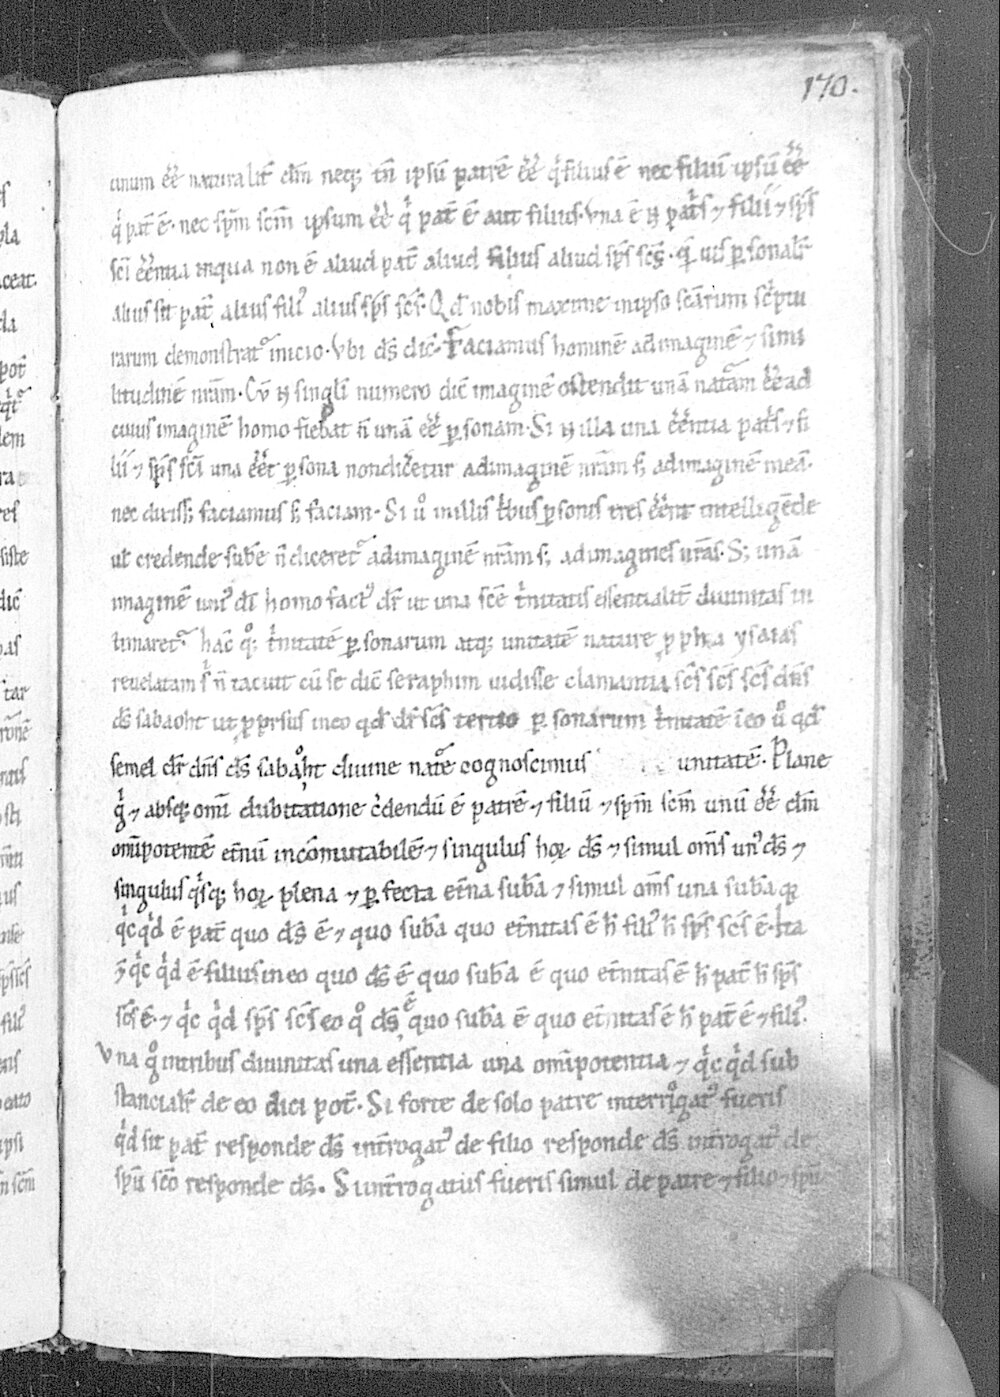 170.
unum eē naturalit̄ dm̄ neq; tn̄ ipsū patrē eē q̇ filius ē nec filiū ipsū eē
q̇ pat̄ ē. nec spm̄ scm̄ ipsum eē q̇ pat̄ ē aut filius. Vna ē n̄ pat̄s ⁊ filii ⁊ sp̄s
sci eēntia inqua non ē aliud pat̄ aliud filius aliud sp̄s sc̄s. q̄ uis ꝑsonalr̄
alius sit pat̄ alius filiꝰ alius sp̄s sc̄s. Qd̄ nobis maxime inipso scārum sc̄ptu
rarum demonstratᷣ inicio. Vbi ds̄ dic̄. Faciamus hominē adimaginē ⁊ simi
litudinē nrām. Cū n̄ singlī numero dic̄ imaginē ostendit unā natām eē ad
cuius imaginē homo fiebat n̄ unā eē ꝑsonam. Si n̄ illa una eēntia pat̄s ⁊ fi
lii ⁊ sp̄s sc̄i una eēt ꝑsona non dic̄etur adimaginē nrām s; adimaginē meā.
nec dixiss; faciamus s; faciam. Si u̇ inillis t̄bus ꝑsonis tres eēnt intelligēde
ul̄ credende subē n̄ diceretᷣ adimaginē nrām s; adimagines nrās. S; unā
imaginē uniꝰ dī homo factꝰ dr̄ ut una scē t̄nitatis essentialit̄ diuinitas in
timaretᷣ. hac̄ q̊; t̄nitatē ꝑsonarum atq; unitatē nature ꝓpħa ysaias
reuelatam s' n̄ tacuit cū se dic̄ seraphim uidisse clamantia sc̄s sc̄s sc̄s dn̄s
ds̄ sabaoht ut ꝓprsius ineo qd̄ dr̄ sc̄s tertio ꝑsonarum t̄nitatē ī eo u̇ qd̄
semel dr̄ dn̄s ds̄ sabaoht diuine natē cognoscimus unitatē. Plane
g̊ ⁊ absq; omī dubitatione c̄dendū ē patrē ⁊ filiū ⁊ spm̄ scm̄ unū eē dm̄
omīpotentē etn̄ū incōmutabilē ⁊ singulus hoꝝ ds̄ ⁊ simul om̄s unꝰ ds̄ ⁊
singulus q̇sq; hoꝝ plena ⁊ ꝑfecta etn̄a subā ⁊ simul om̄s una subā qꝛ
q̇c q̇d ē pat̄ quo ds̄ ē ⁊ quo subā quo etn̄itas ē h̄ filiꝰ h̄ sp̄s sc̄s ē. Ita
⁊ q̇c q̇d ē filius in eo quo ds̄ ē quo subā ē quo etn̄itas ē h̄ pat̄ h̄ sp̄s
sc̄s ē. ⁊ q̇c q̇d sp̄s sc̄s eo q̊ ds̄ ē quo subā ē quo etn̄itas ē h̄ pat̄ ē ⁊ filiꝰ.
Vna g̊ intribus diuinitas una essentia una omīpotentia ⁊ q̇c q̇d sub
stancialr̄ de eo dici pot̄. Si forte de solo patre interrogatꝰ fueris
q̇d sit pat̄ responde ds̄ int̄rogatꝰ de filio responde ds̄ int̄rogatꝰ de
spū scō responde ds̄. Si int̄rogatus fueris simul de patre ⁊ filio ⁊ spū